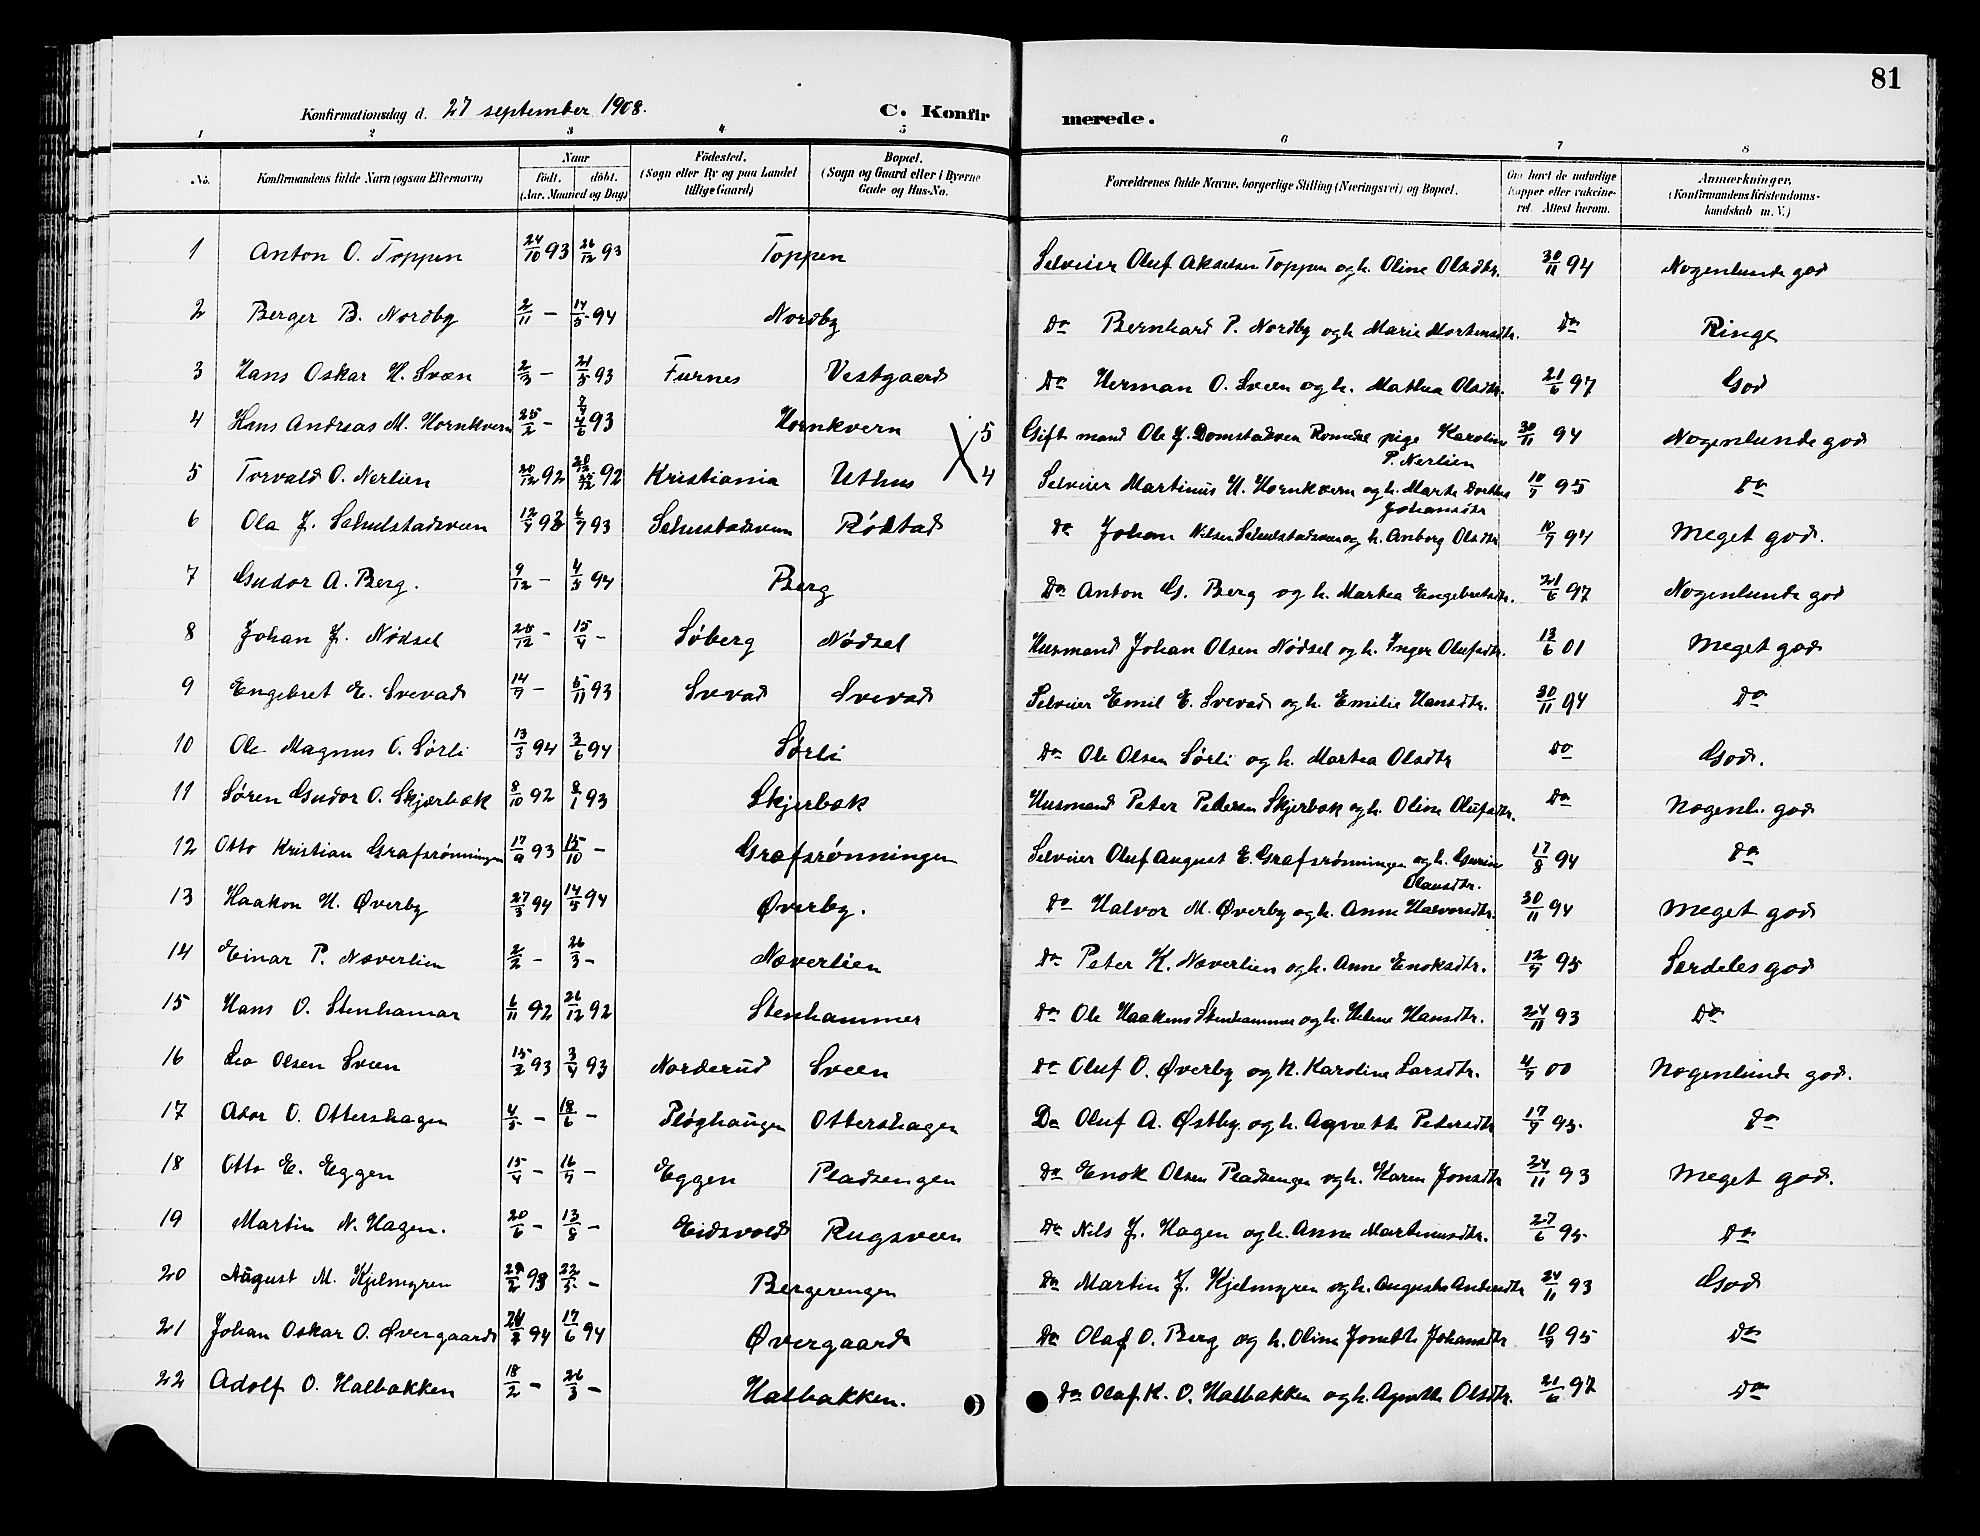 81
Konfirmationsdag d. 27 september 1908.
C. Konfirmerede.
1 2 3 4 5 6 7 8
No.
Konfirmandens fulde Navn (ogsaa Efternavn)
Naar
født. døbt.
(Aar, Maaned og Dag)
Fødested.
(Sogn eller By og paa Landet
tillige Gaard)
Bopæl.
(Sogn og Gaard eller i Byerne
Gade og Hus-No.
Forældrenes fulde Navne, borgerlige Stilling (Næringsvei) og Bopæl.
Om havt de naturlige
Kopper eller vaccine-
ret. Attest herom.
Anmærkninger.
(Konfirmandens Kristendoms-
kundskab m. V.)
1 Anton O. Toppen 24/10 93 26/12 93 Toppen Selveier Oluf Akselsen Toppen og h. Oline Olsdtr. 30/11 94 Nogenlunde god
2 Berger B. Nordby 2/11 — 14/5 94 Nordby Do Bernhard P. Nordby og h. Marie Mortensdtr. Do Ringe
3 Hans Oskar H. Sveen 2/3 — 21/5 93 Furnes Vestgaard Do Herman O. Sveen og h. Mathea Olsdtr. 21/6 97 God
4 Hans Andreas M. Hornkvern 25/2 — 4/6 93 Hornkvern 5 Gift mand Ole J. Domstadveen Romedal pige Karoline 30/11 94 Nogenlunde god
P. Nerlien
5 Torvald O. Nerlien 20/12 92 92 Kristiania Uthus 4 Selveier Martinus H. Hornkvern og h. Marte Dorthea 10/7 95 Do
Johansdtr
6 Ola J. Schulstadsveen 12/7 6/7 93 Schulstadsveen Rødstad Do Johan Nilsen Schulstadsveen og h. Anborg Olsdtr 10/7 94 Meget god.
7 Gudor A. Berg. 9/12 — 4/5 94 Berg Do Anton G. Berg og h. Martea Engebretsdtr. 21/6 97 Nogenlunde god
8 Johan J. Nødsel 25/12 — 15/4 — Søberg Nødsel Husmand Johan Olsen Nødsel og h. Inger Olufsdtr. 13/6 01 Meget god
9 Engebret E. Svevad 14/7 — 5/11 93 Svevad Svevad Selveier Emil E. Svevad og h. Emilie Hansdtr. 30/11 94 Do
10 Ole Magnus O. Sørli 13/3 94 3/6 94 Sørli Do Ole Olsen Sørli og h. Martea Olsdtr Do God.
11 Søren Gudor O. Skjærbæk 8/10 92 8/1 93 Skjerbæk Husmand Peter Pedersen Skjerbæk og h. Oline Olufsdtr. Do Nogenl. god
12 Otto Kristian Grafsrønningen 17/9 93 15/10 — Grafsrønningen Selveier Oluf August E. Grafsrønningen og h. Gurine 17/8 94 Do
Olausdtr.
13 Haakon H. Øverby 27/3 94 14/5 94 Øverby. Do Halvor M. Øverby og h. Anne Halvorsdtr. 30/11 94 Meget god
14 Einar P. Næverlien 2/2 — 26/3 — Næverlien Do Peter K. Næverlien og h. Anne Enoksdtr. 12/7 95 Særdeles god
15 Hans O. Stenhamar 6/11 92 26/12 92 Stenhammer Do Ole Haakens Stenhammer og h. Helene Hansdtr. 24/11 93 Do
16 Leo Olsen Sveen 15/2 93 3/4 93 Norderud Sveen Do Oluf O. Øverby og h. Karoline Larsdtr. 4/7 00 Nogenlunde god.
17 Asor O. Ottershagen 4/5 — 18/6 — Pløghaugen Ottershagen Do Oluf A. Østby og h. Agnethe Petersdtr 17/7 95. Do
18 Otto E. Eggen 15/4 — 16/7 — Eggen Pladsengen Do Enok Olsen Pladsengen og h. Karen Jonsdtr 24/11 93 Meget god.
19 Martin N. Hagen. 20/6 — 13/8 — Eidsvold Rugsveen Do Nils J. Hagen og h. Anne Martinusdtr. 27/6 95. Do
20 August M. Kjelmyren 93 22/5 — Bergerengen Do Martin J. Kjelmyren og h. Augusta Andersdtr 24/11 93 God
21 Johan Oskar O. Øvergaard 94 17/6 94 Øvergaard Do Olaf O. Berg og h. Oline Jonette Johansdtr 10/7 95 Do
22 Adolf O. Halbakken 18/2 — 26/3 — Halbakken. Do Olaf K. O. Halbakken og h. Agnethe Olsdtr. 21/6 97 Do